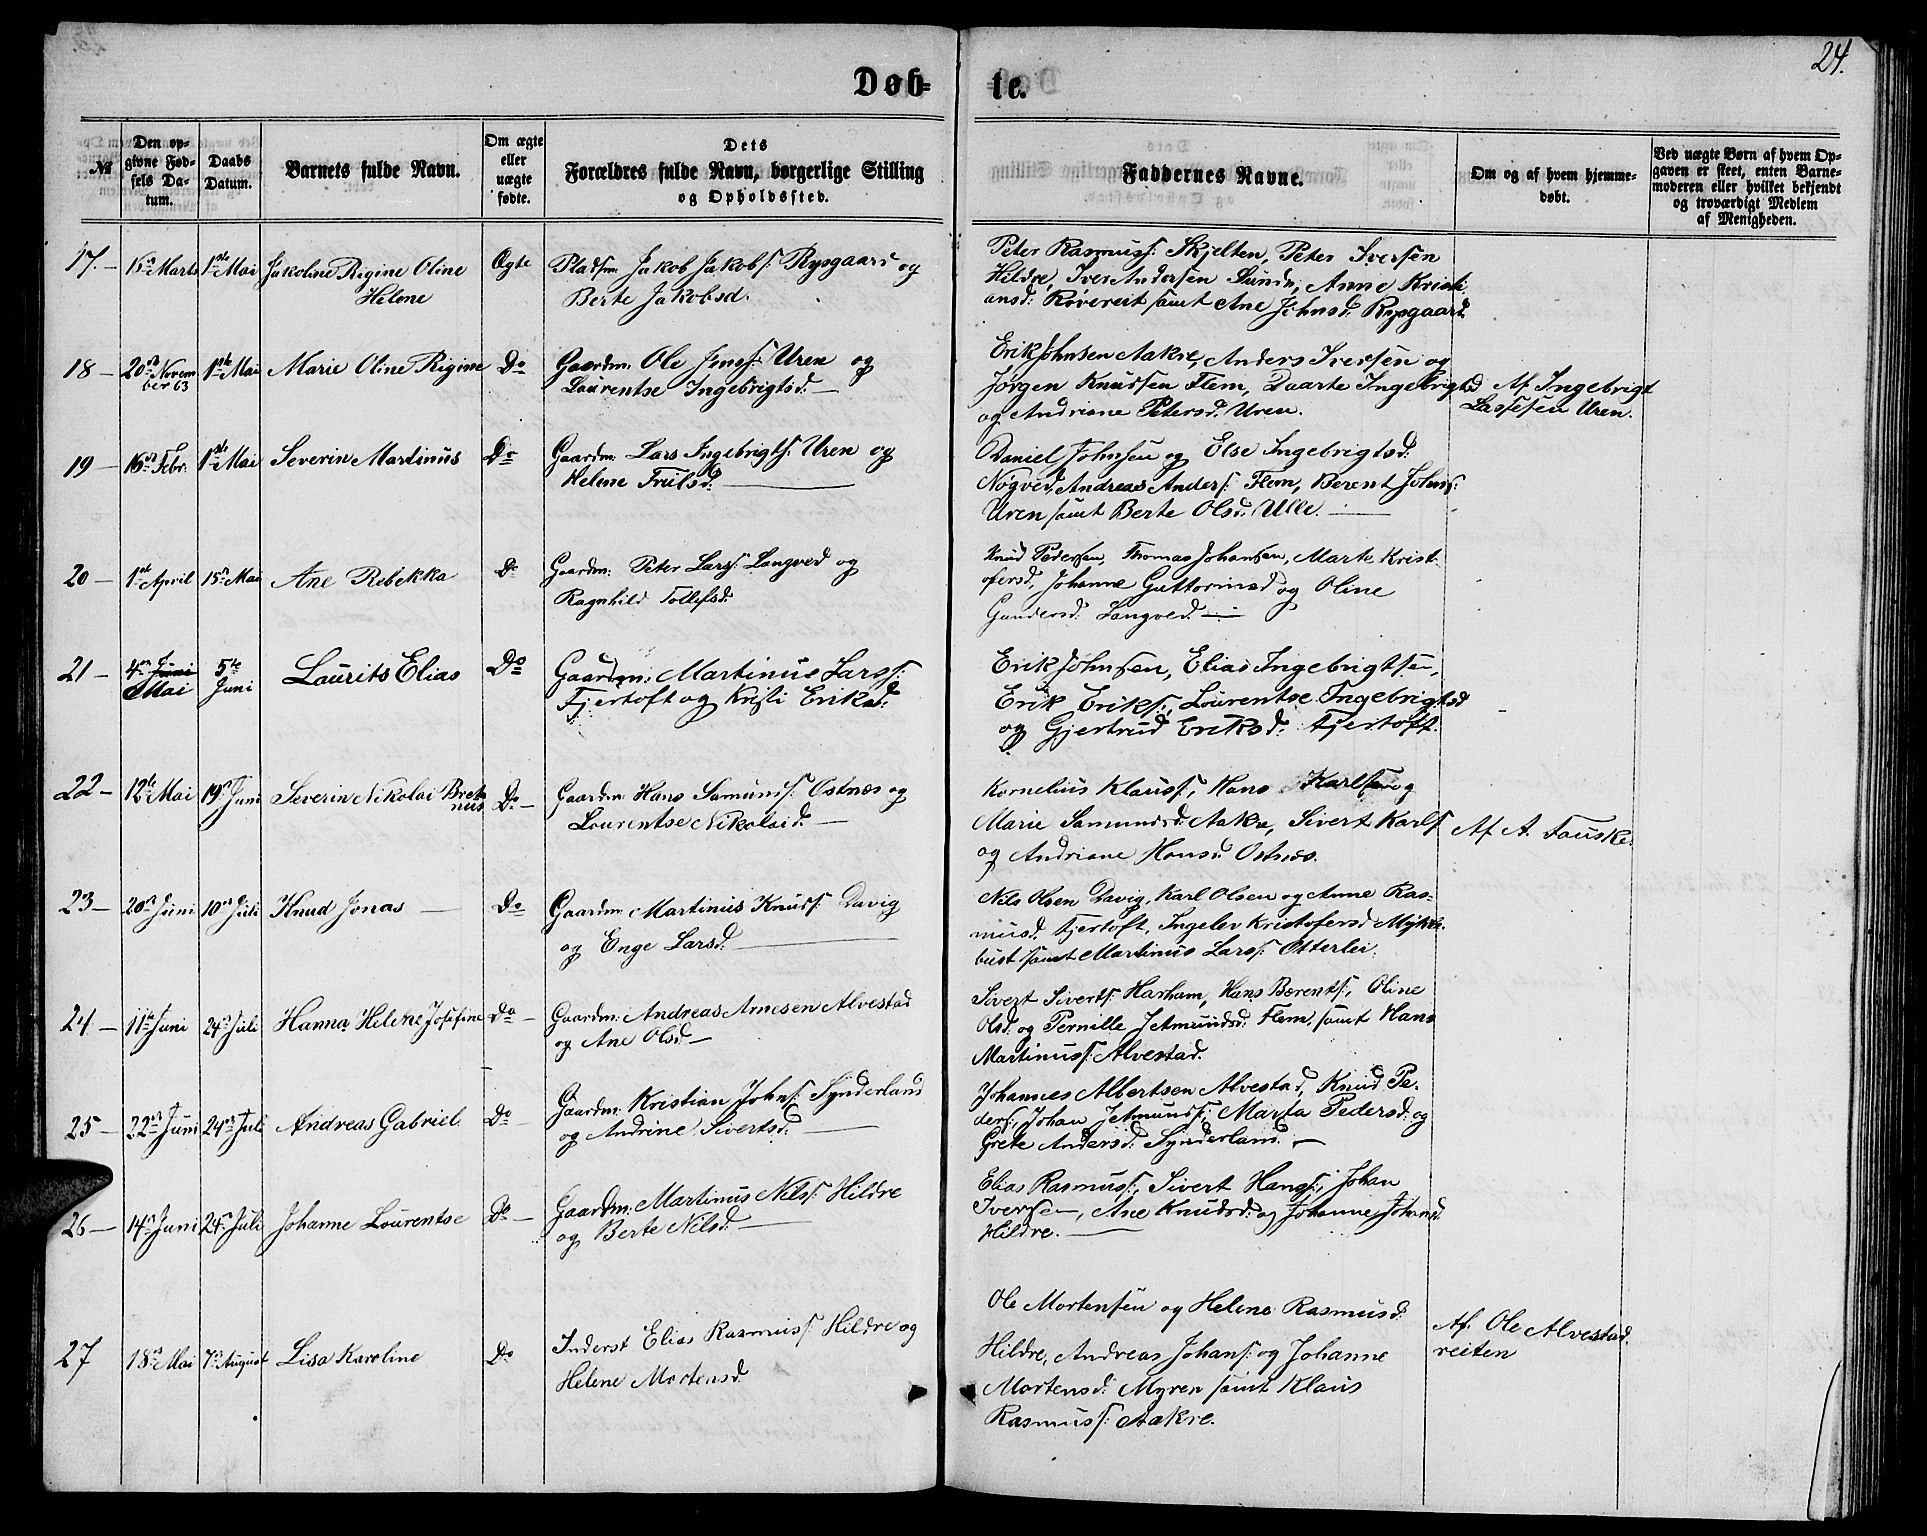 24.
Døb-
te.
№
Den op-
givne Fød-
sels Da-
tum.
Daabs
Datum.
Barnets fulde Navn.
Om ægte
eller
uægte
fødte.
Dets
Forældres fulde Navn, borgerlige Stilling
og Opholdssted.
Faddernes Navne.
Om og af hvem hjemme-
døbt.
Ved uægte Børn af hvem Op-
gaven er skeet, enten Barne-
moderen eller hvilket bekjendt
og troværdigt Medlem
af Menigheden.
17. — Marts 1ste Mai Jakoline Rigine Oline
Helene
Ægte
Pladsm. Jakob Jakobs: Rysgaard og
Berte Jakobsd.
Peter Rasmuss: Skjelten, Peter Iversen
Hildre, Iver Andersen Lunde, Anne Kristi
ansd: Røvereit samt Ane Johnsd. Rysgaard
18 — 20de Novem
ber 63
1ste Mai Marie Oline Rigine Do
Gaardm: Ole Jens: Uren og
Laurentse Ingebrigtsd. —
Erik Johnsen Aakre, Anders Iversen og
Jørgen Knudsen Flem, Daarte Ingebrigtsd
og Andriane Petersd. Uren.
Af Ingebrigt
Lassesen Uren.
19 — 16de Febr. 1ste Mai Severin Martinus Do
Gaardm: Lars Ingebrigts: Uren og
Helene Trulsd: —
Daniel Johnsen og Else Ingebrigtsd.
Nøgved, Andreas Anders: Flem, Berent Johns:
Uren samt Berte Olsd. Ulle. —
20 — 1ste April 15de Mai Ane Rebekka Do
Gaardm: Peter Lars: Langved og
Ragnhild Tollefsd:
Knud Pedersen, Thomas Johansen, Marte Krist
ofersd, Johanne Guttormsd og Oline
Gundersd: Langved. —
21 — 4de Juni
Mai
5te
Juni
Laurits Elias Do
Gaardm: Martinus Lars:
Fjertoft og Kristi Eriksd:
Erik Johnsen, Elias Ingebrigtsen,
Erik Eriks:, Lourentse Ingebrigtsd
og Gjertrud Eriksd. Fjertoft.
22 — 12te Mai 19de Juni Severin Nikolai Bret
nus
Do —
Gaardm: Hans Samunds: Ostnes og
Lourentse Nikolaid. —
Kornelius Klauss:, Hans Karlsen og
Marie Samundsd: Aakre, Sivert Karls
og Andriane Hansd: Ostnes.
Af A. Fauske.
23 — 20de Juni 10de Juli Knud Jonas — Do
Gaardm: Martinus Knuds: Davig
og Enge Larsd. —
Nils Olsen Davig, Karl Olsen og Anne Ras-
musd. Fjertoft, Ingelev Kristofersd Mykle-
bust samt Martinus Lars: Otterlei.
24 — 11te Juni 24de Juli Hanna Helene Josefine Do —
Gaardm: Andreas Arnesen Alvestad
og Ane Olsd. —
Sivert Siverts: Harham, Hans Berents:, Oline
Olsd: og Pernille Jetmundsd: Flem, samt Hans
Martinuss: Alvestad.
25 — 22de Juni 24de Juli Andreas Gabriel Do —
Gaardm: Kristian Johns: Synderland
og Andrine Sivertsd: —
Johannes Albertsen Alvestad, Knud Pe-
ders:, Johan Jetmunds:, Marta Pedersd: og
Grete Andersd: Synderland. —
26 — 14de Juni 24de Juli Johanne Lourentse Do —
Gaardm: Martinus Nils: Hildre
og Berte Nilsd. —
Elias Rasmuss:, Sivert Hanss:, Johan
Iversen, Ane Knudsd: og Johanne Johansd
Hildre. —
27 18de Mai 7de August Lisa Karoline Do
Inderst Elias Rasmuss: Hildre og
Helene Mortensd.
Ole Mortensen og Helene Rasmusd:
Hildre, Andreas Johans: og Johanne
Mortensd: Myren samt Klaus
Rasmuss: Aakre.
Af: Ole Alvestad.
reiten